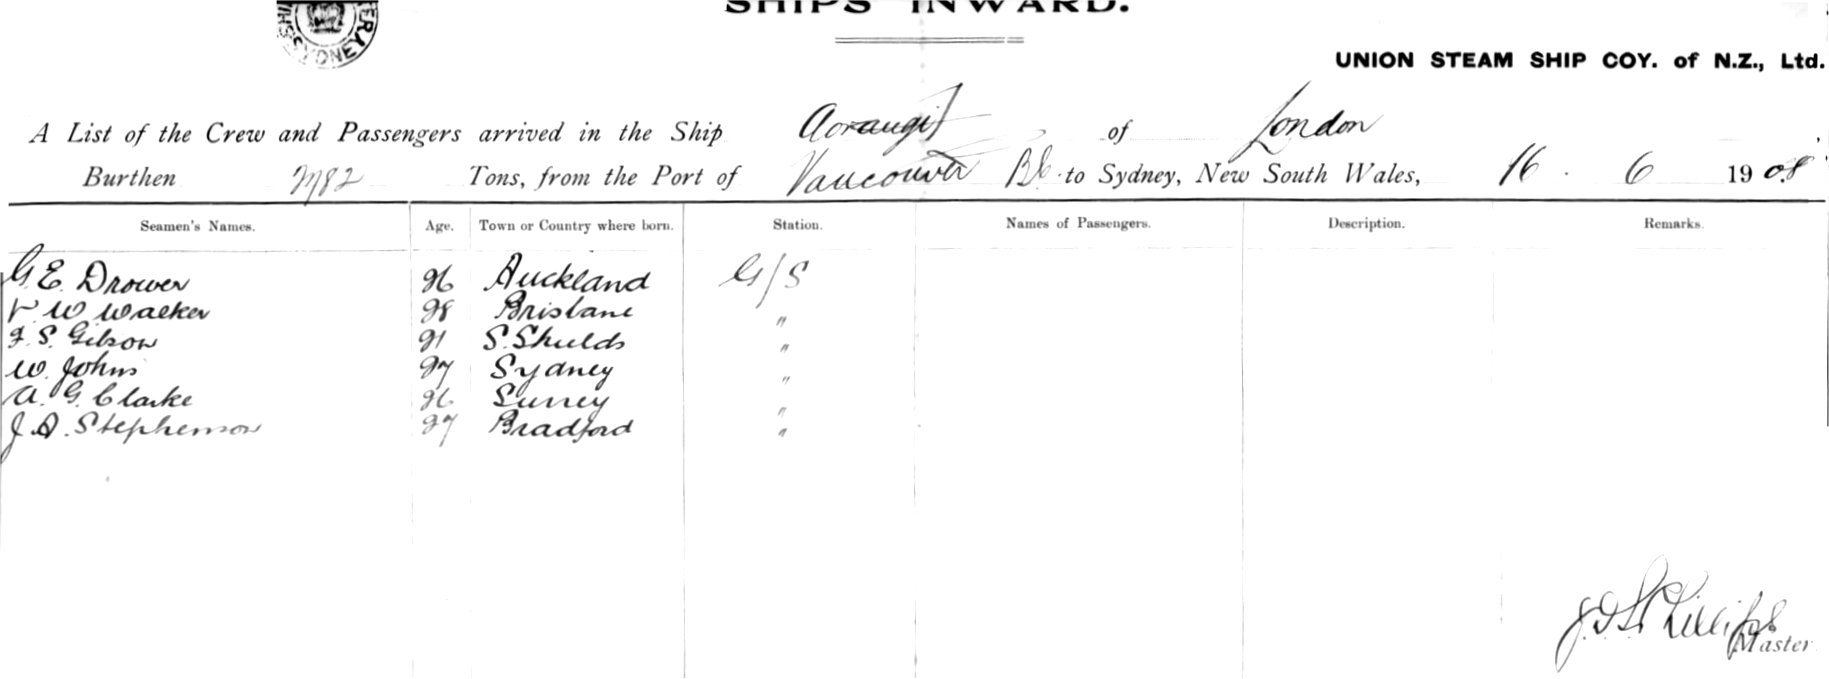 SHIPS INWARD.
SYDNEY
UNION STEAM SHIP COY. of N.Z., Ltd.
A List of the Crew and Passengers arrived in the Ship Aorangi of London
Burthen 2782 Tons, from the Port of Vancouver BC to Sydney, New South Wales, 16 . 6 1908
Seamen's Names. Age. Town or Country where born. Station. Names of Passengers. Description. Remarks.
G. E. Drower 26 Auckland G/S
W Walker 28 Brisbane "
F. S. Gibson 21 S. Shields "
W. Johns 27 Sydney "
A. G. Clarke 26 Surrey "
J. A. Stephenson 27 Bradford "
Phillips
Master